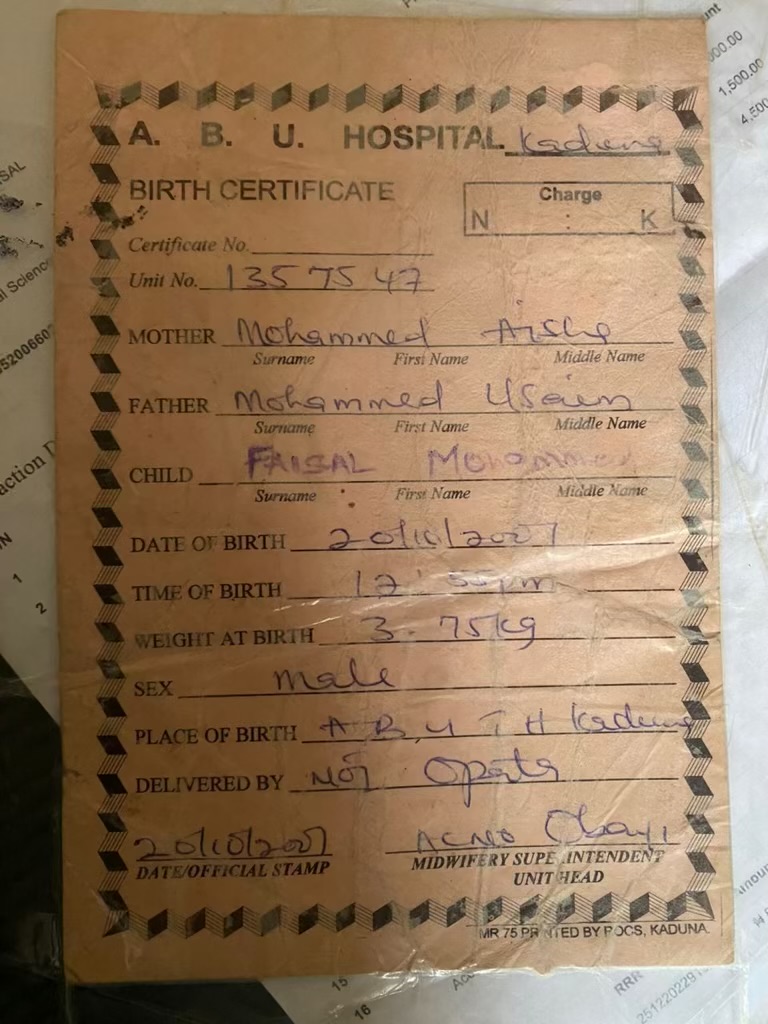 A. B. U. HOSPITAL Kaduna
BIRTH CERTIFICATE
Charge
N : K
Certificate No.
Unit No. 1357547
MOTHER Mohammed Aisha
Surname First Name Middle Name
FATHER Mohammed Usain
Surname First Name Middle Name
CHILD FAISAL Mohammed
Surname First Name Middle Name
DATE OF BIRTH 20/10/2007
TIME OF BIRTH 12 pm
WEIGHT AT BIRTH 3.75kg
SEX Male
PLACE OF BIRTH A B U T H Kaduna
DELIVERED BY Opata
20/10/2007 ACNO Obayi
DATE/OFFICIAL STAMP MIDWIFERY SUPERINTENDENT
UNIT HEAD
MR 75 PRINTED BY POCS, KADUNA.
000.00
1,500.00
4,500
SAL
action D
1
2
15
16
RRR